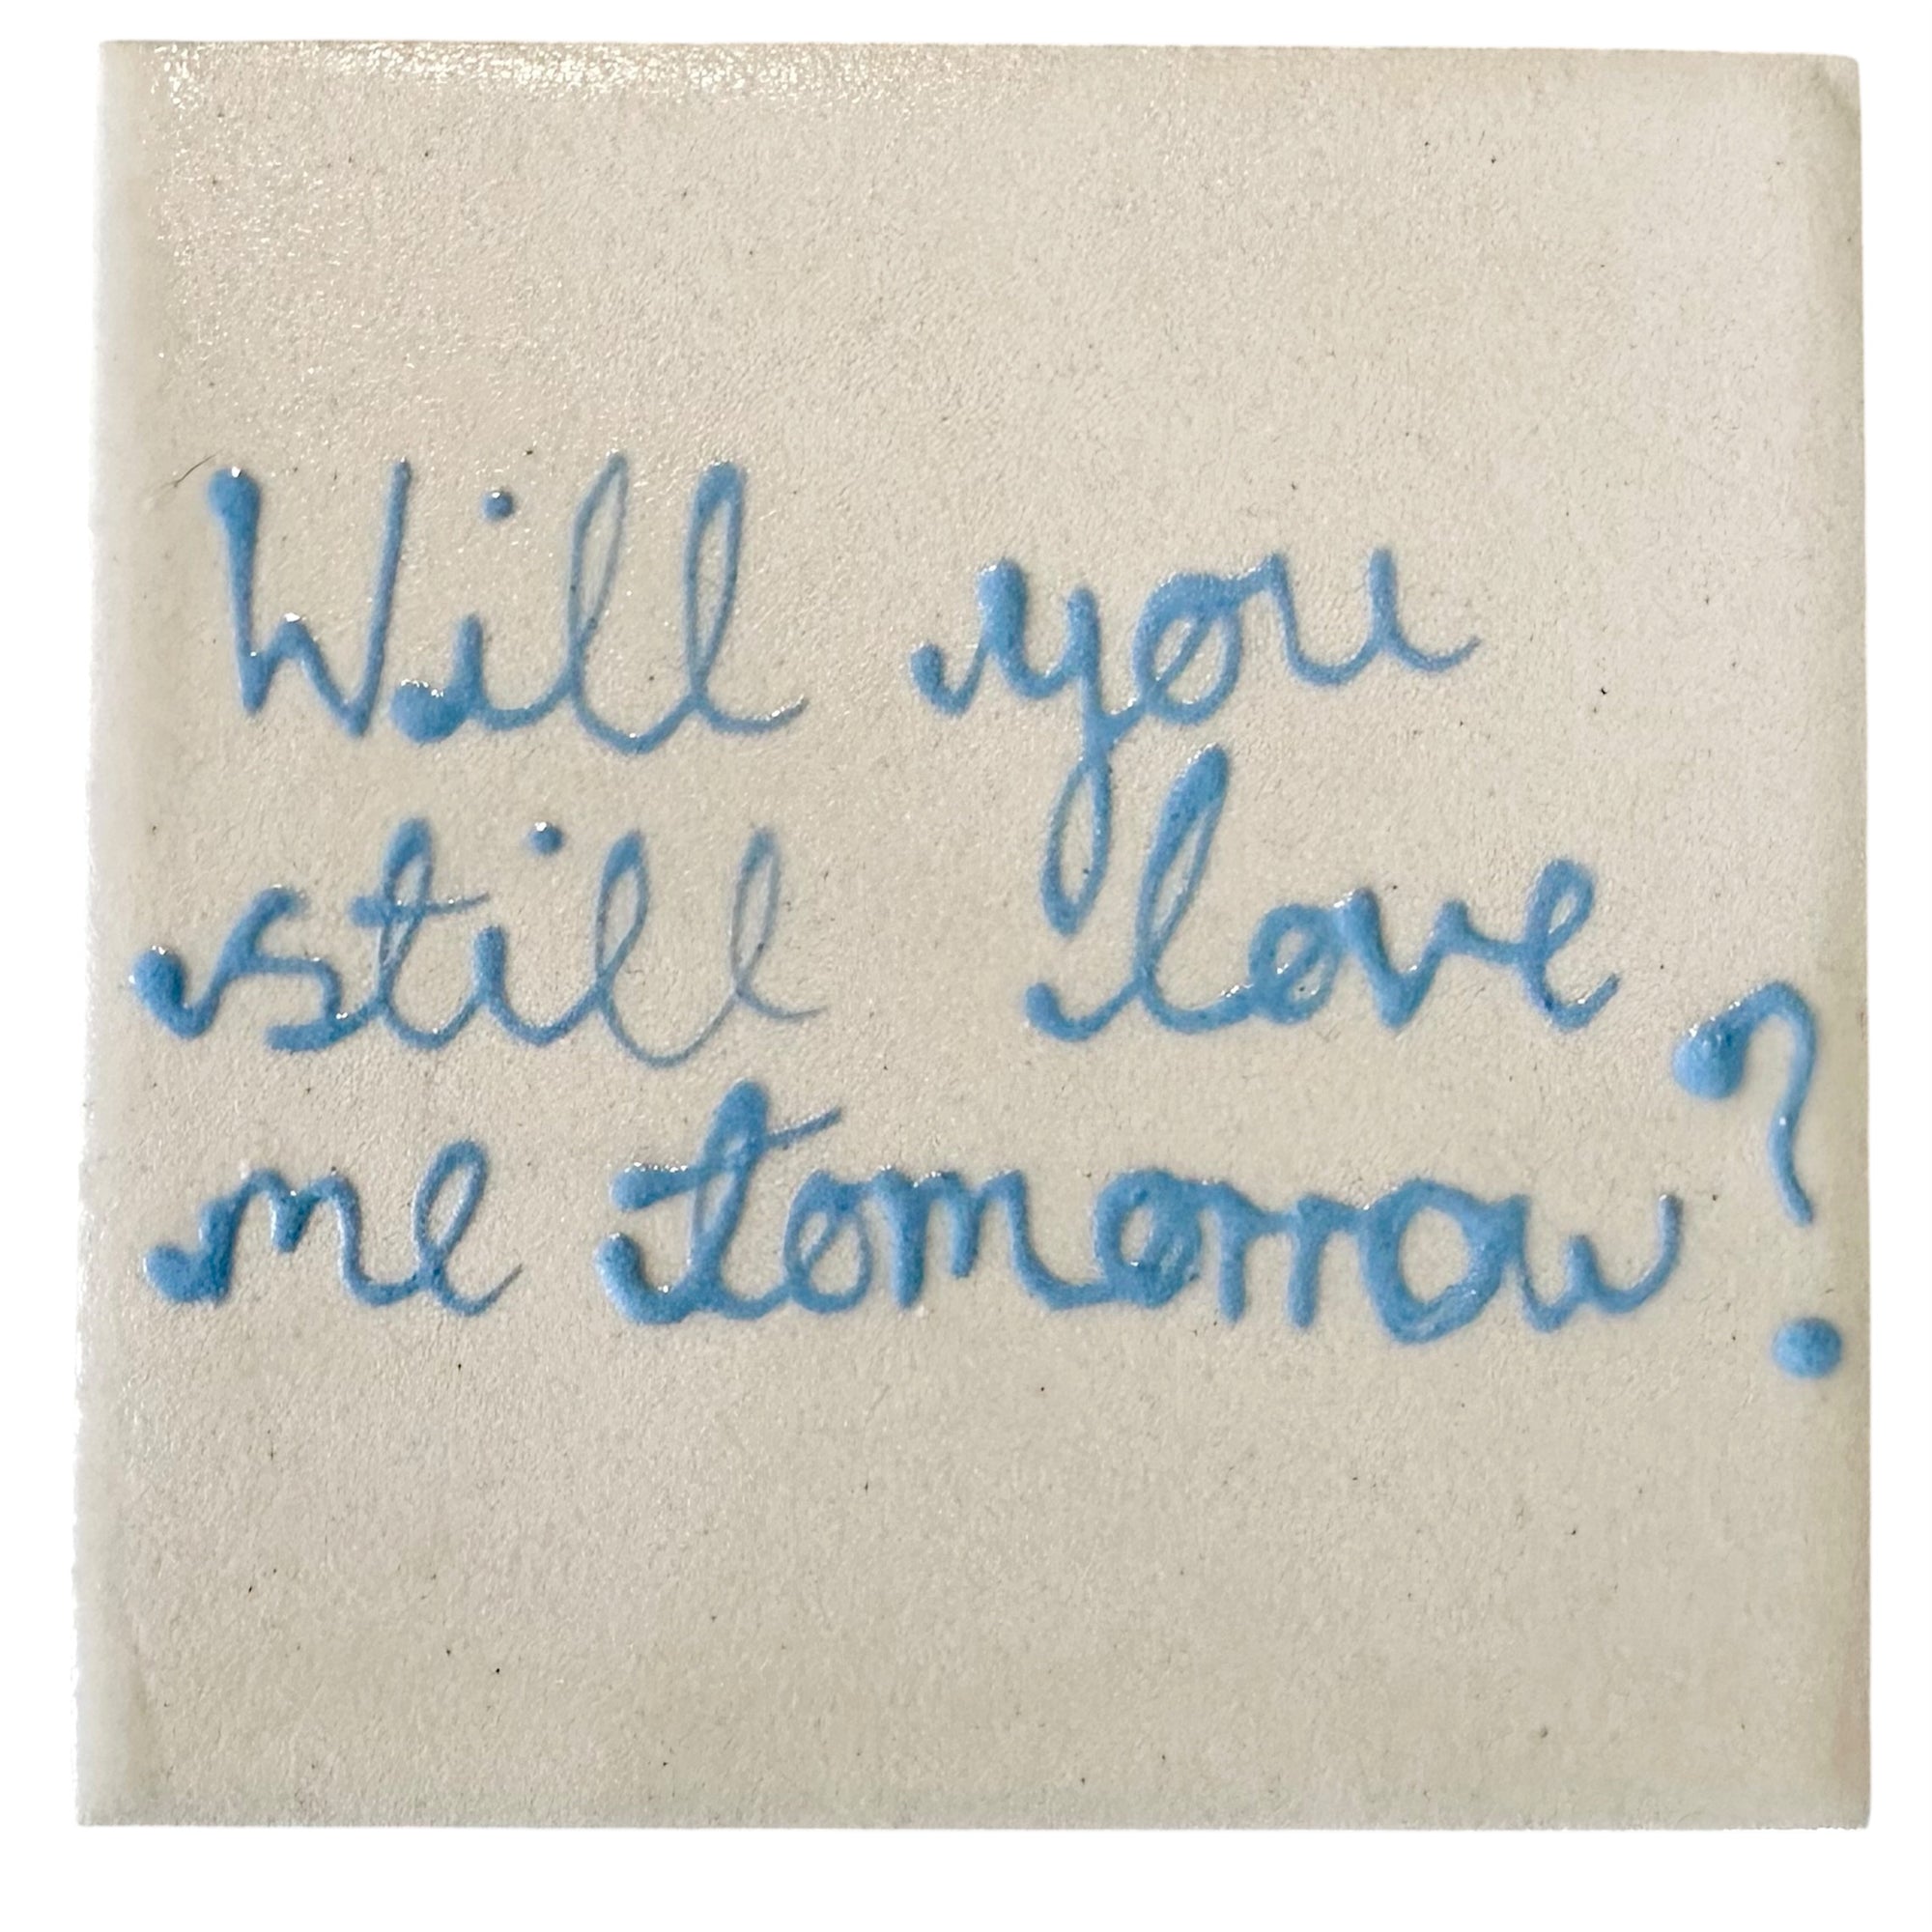 Will you
still love
me tomorrow?